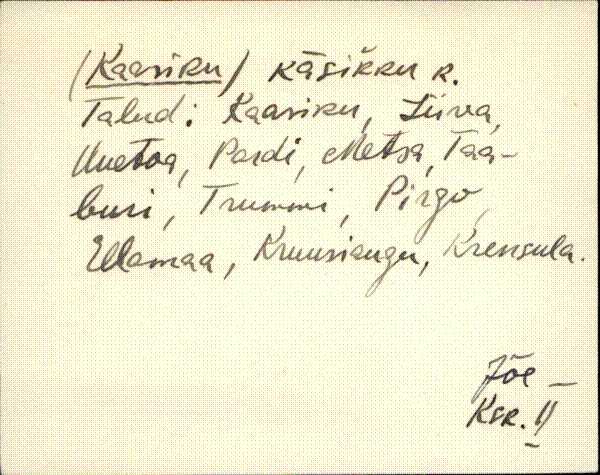 (Kaasiku) kāsikku k.
Talud: Kaasiku, Liiva,
Uuetoa, Pardi, Metsa, Taa-
buri, Trummi, Pirgo,
Ellamaa, Kruusiaugu, Krensula.
Jõe –
Ksk. II